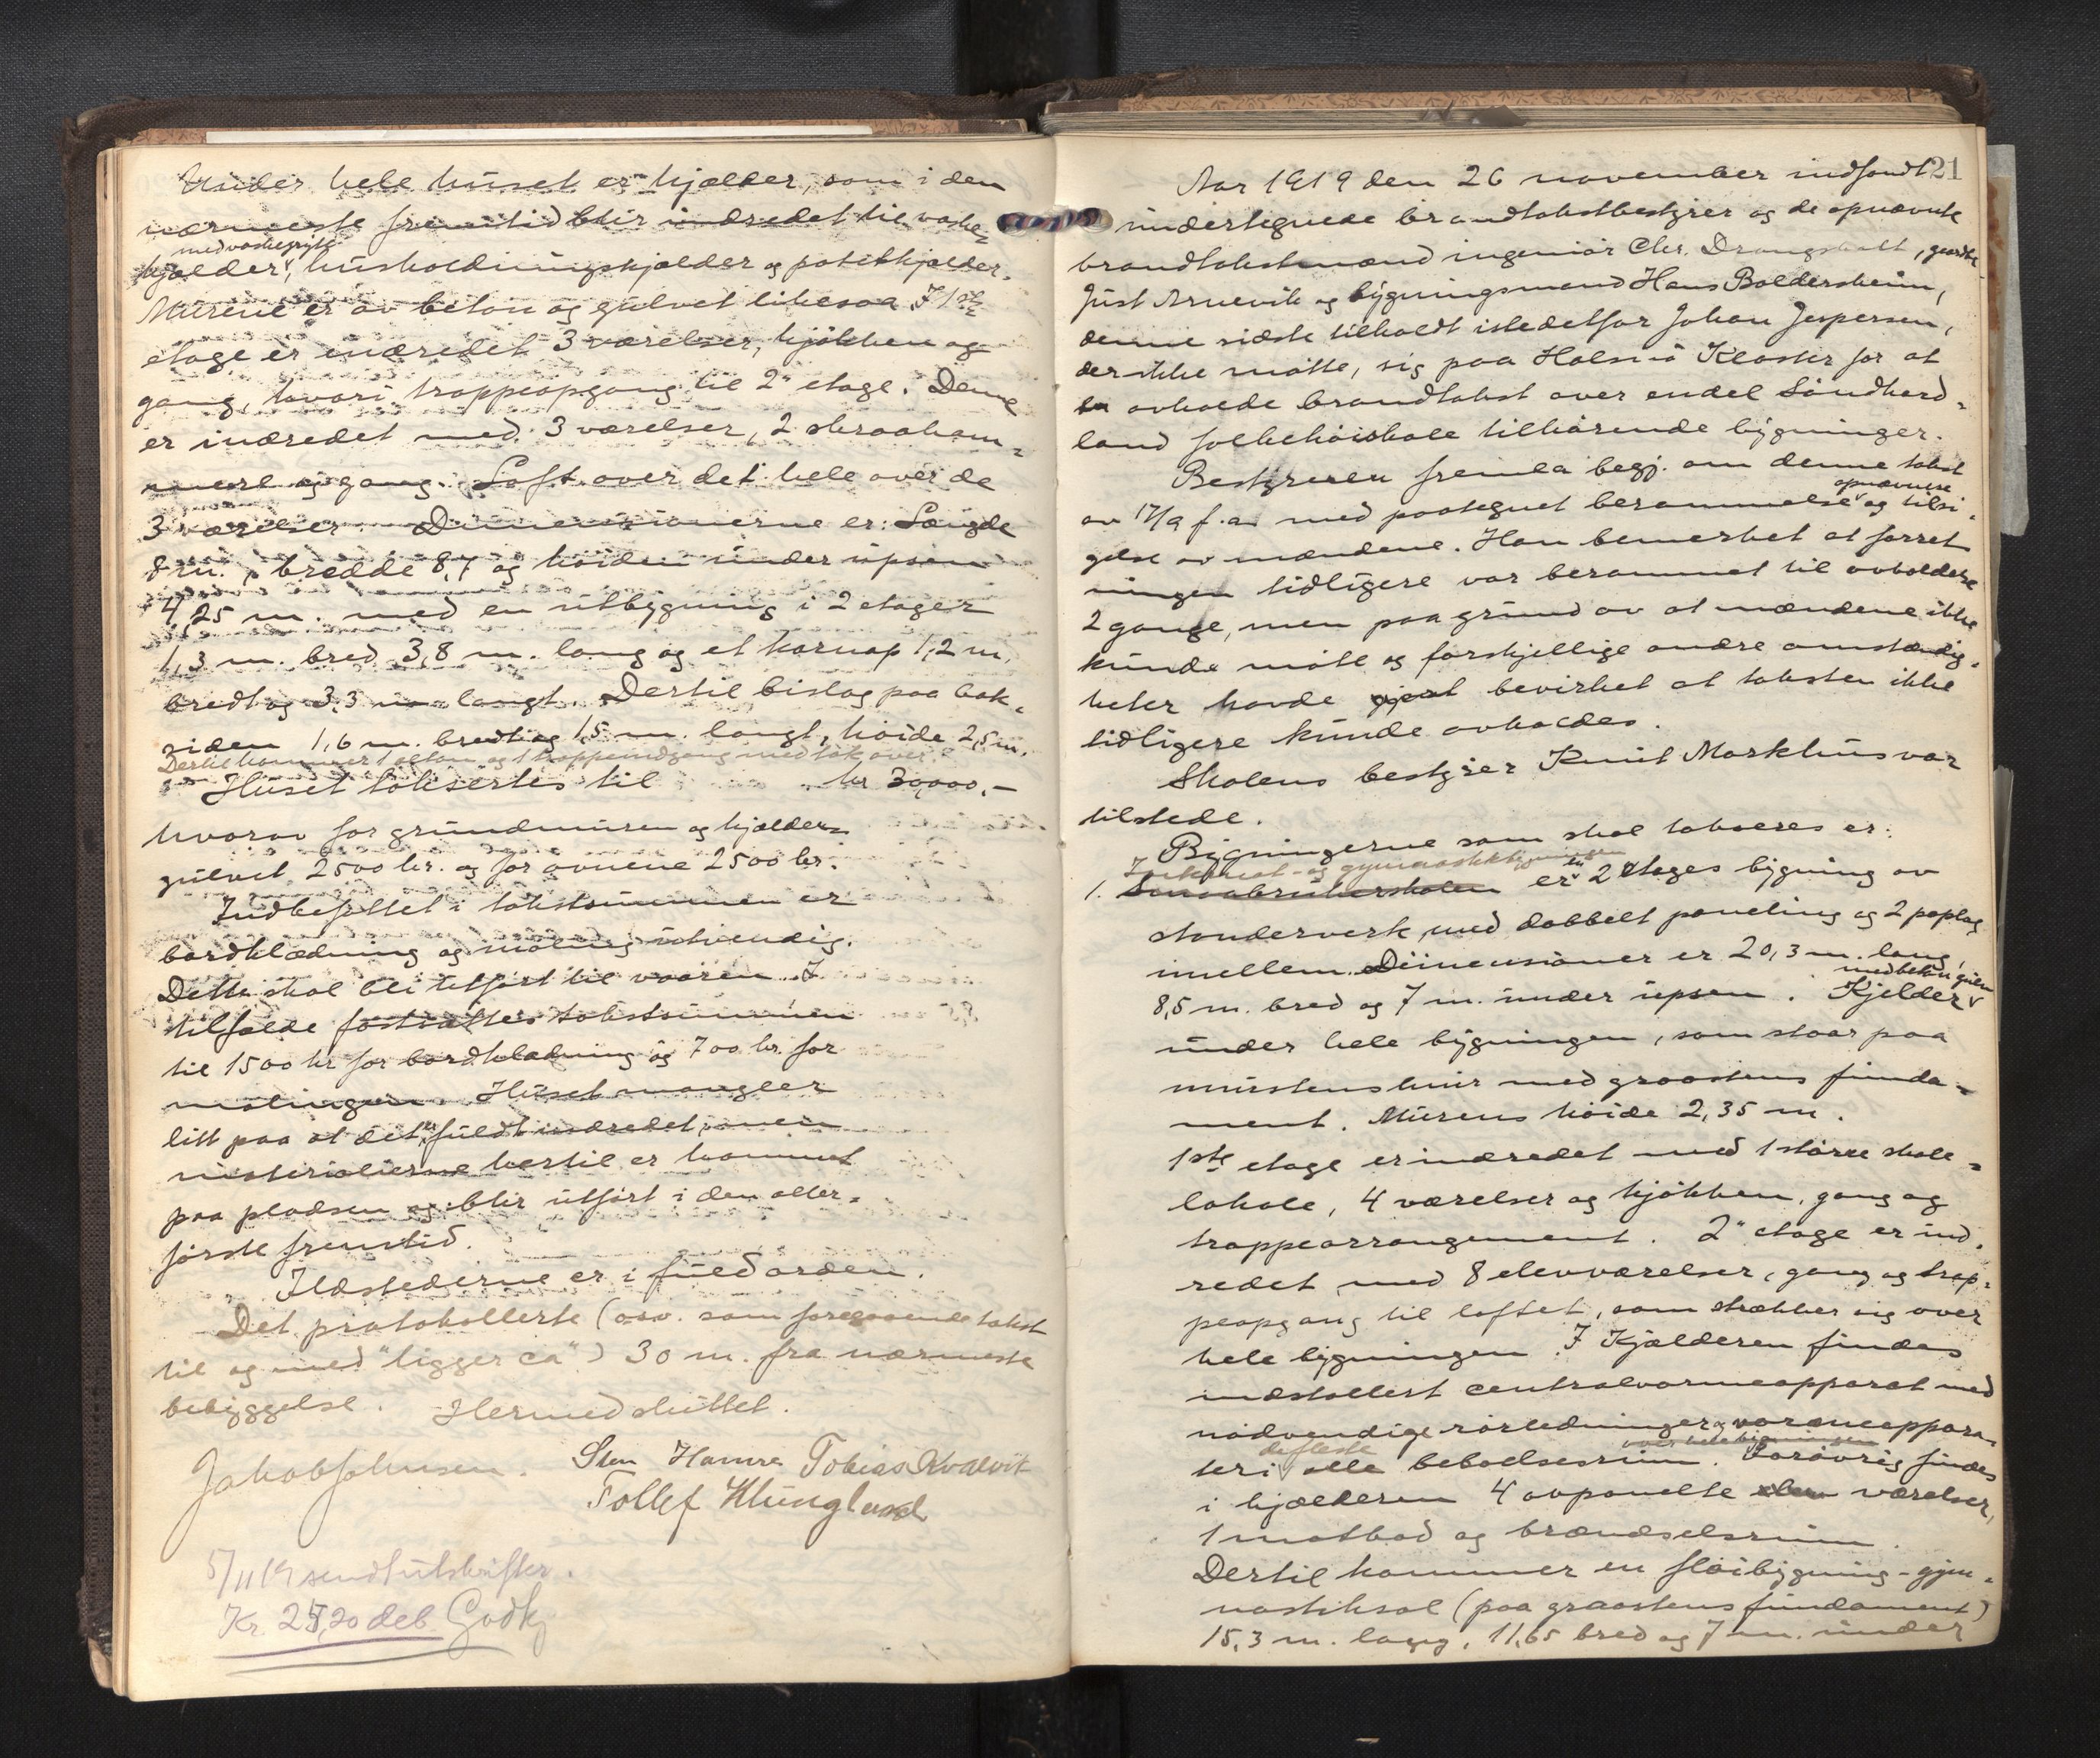 Under hele huset er kjælder, som i den
nærmeste fremtid blir indredet til vaske-
med vaskegryte
kjælder, husholdningskjælder og potetkjælder.
Murene er av beton og gulvet likesaa. I 1ste
etage er indredet 3 værelser, kjøkken og
gang, hvori trappeopgang til 2" etage. Denne
er indredet med 3 værelser, 2 skraakam-
mere og gang. Loft over det hele over de
3 værelser. Dimensionerne er: Længde
8 m., bredde 8,7 og høiden under upsen
4,25 m. med en utbygning i 2 etager
1,3 m. bred 3,8 m. lang og et karnap 1,2 m.
bredt og 3,3 m. langt. Dertil bislag paa bak-
siden 1,6 m. bredt og 1,5 m. langt, høide 2,5 m.
Dertil kommer 1 altan og 1 trappeindgang med tak over.
Huset taksertes til kr 30,000.-
hvorav for grundmuren og kjælder-
gulvet 2500 kr. og for ovnene 2500 kr.
Indbefattet i takstsummen er
bordklædning og maling utvendig.
Dette skal bli utført til vaaren. I
tilfælde fastsattes takstsummen
til 1500 kr for bordklædning og 700 kr. for
malingen. Huset mangler
litt paa at det er fuldt indredet, men
materialierne hertil er kommet
paa pladsen og blir utført i den aller-
første fremtid.
Ildstederne er i fuld orden.
Det protokollerte (osv. som foregaaende takst
til og med "ligger ca") 30 m. fra nærmeste
bebyggelse. Hermed sluttet.
Jakob Johnsen. Sten Hamre Tobias Kvalvik
Tollef Klungland
5/11 19 sendt utskrifter.
Kr. 25,20 deb Godkj
21
Aar 1919 den 26 november indfandt
undertegnede brandtakstbestyrer og de opnævnte
brandtakstmænd ingeniør Chr. Drangsholt, gaardbr.
Just Arnevik og bygningsmand Hans Boldersheim,
denne sidste tilkaldt istedetfor Johan Jespersen,
der ikke møtte, sig paa Halsnø Kloster for at
avholde brandtakst over endel Søndhord-
land folkehøiskole tilhørende bygninger.
Bestyreren fremla begj. om denne takst
opnævnelse
av 17/9 f.a. med paategnet berammelse og tilsi-
gelse av mændene. Han bemerket at forret-
ningen tidligere var berammet til avholdelse
2 gange, men paa grund av at mændene ikke
kunde møte og forskjellige andre omstændig-
heter havde bevirket at taksten ikke
tidligere kunde avholdes.
Skolens bestyrer Knut Markhus var
tilstede.
Bygningerne som skal takseres er:
Internat- og gymnastikbygningen
1. Smaabrukerskolen er en 2 etages bygning av
standerverk, med dobbelt paneling og 2 paplag
imellem. Dimensioner er 20,3 m. lang,
med beton gulv
8,5 m. bred og 7 m. under upsen. Kjelder
under hele bygningen, som staar paa
murstens mur med graastens funda-
ment. Murens høide 2,35 m.
1ste etage er indredet med 1 større skole-
lokale, 4 værelser og kjøkken, gang og
trappearrangement. 2" etage er ind-
redet med 8 elevværelser, gang og trap-
peopgang til loftet, som strækker sig over
hele bygningen. I Kjælderen findes
indstallert centralvarmeapparat med
nødvendige rørledninger og varmeappara-
de fleste over hele bygningen
ter i alle beboelsesrum. Forøvrig findes
i kjælderen 4 avpanelte værelser,
1 matbod og brændselsrum.
Dertil kommer en fløibygning - gym-
nastiksal (paa graastens fundament)
15,3 m. lang, 11,65 bred og 7 m. under